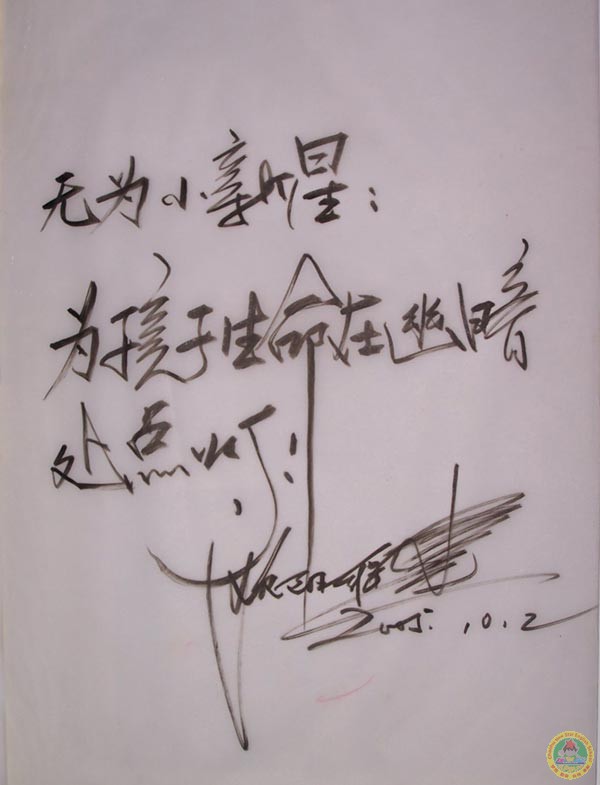 无为小新星：
为孩子生命在幽暗
处点灯！
2005.10.2